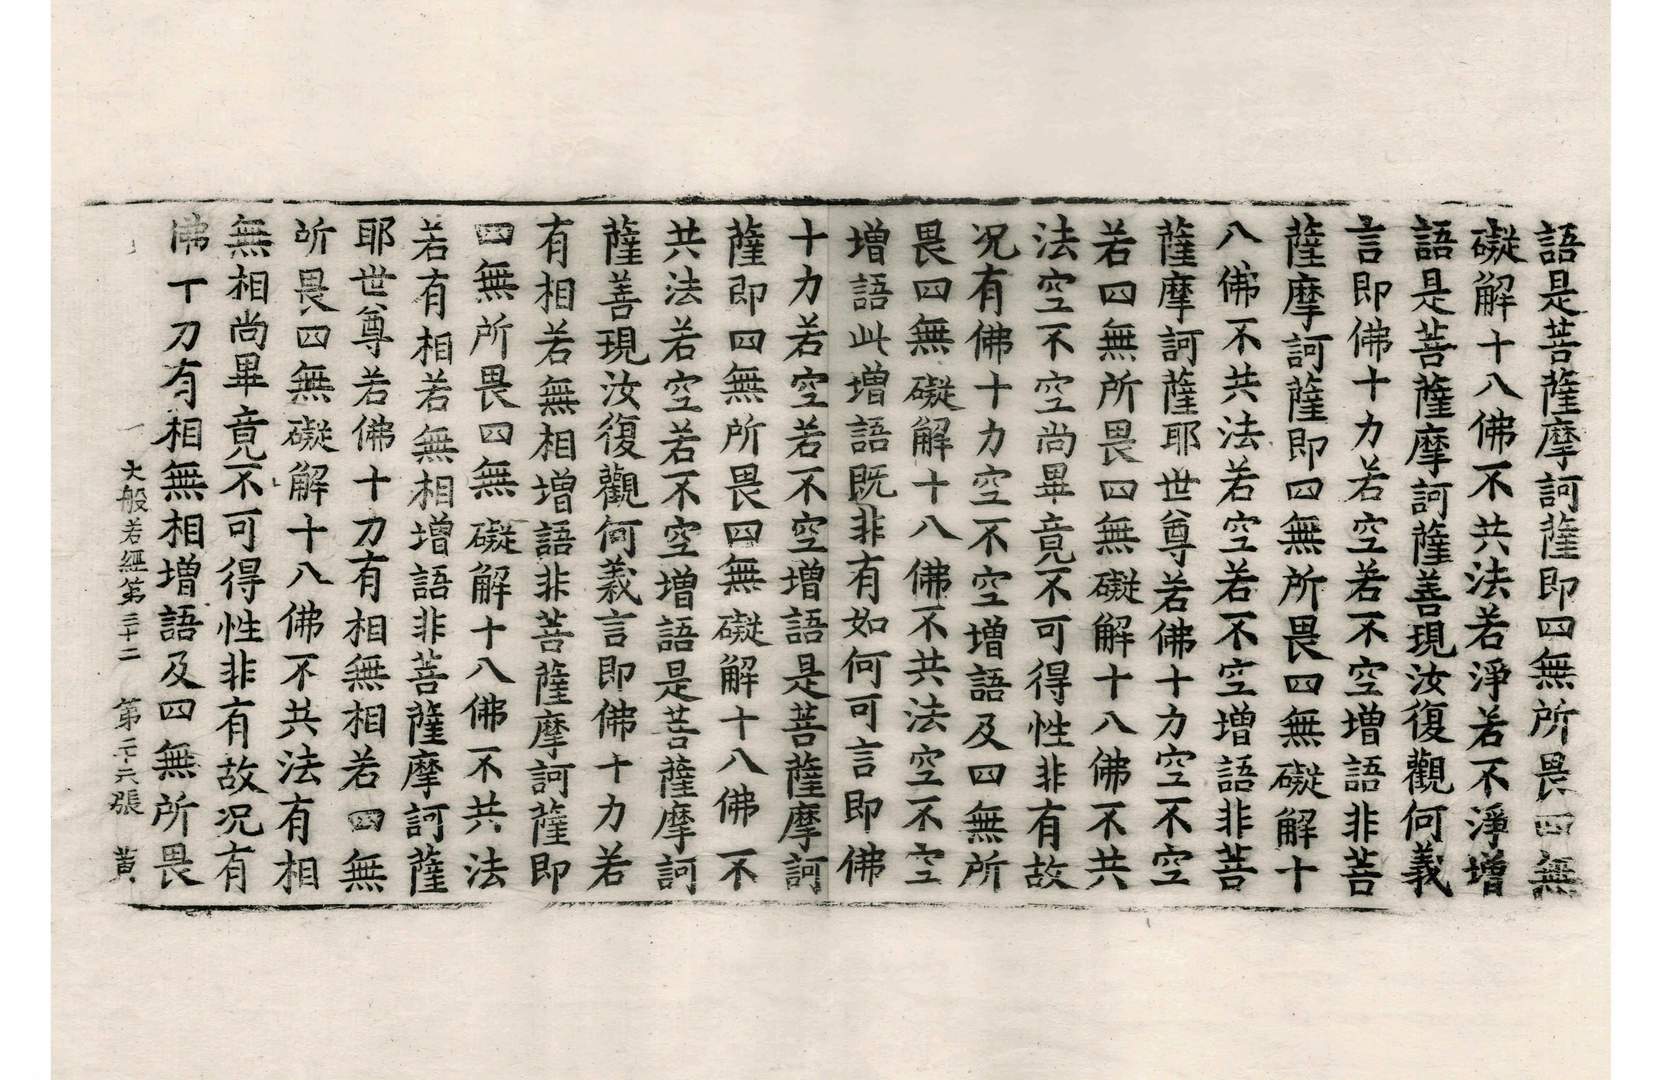 語是菩薩摩訶薩即四無所畏四無
礙解十八佛不共法若淨若不淨增
語是菩薩摩訶薩善現汝復觀何義
言即佛十力若空若不空增語非菩
薩摩訶薩即四無所畏四無礙解十
八佛不共法若空若不空增語非菩
薩摩訶薩耶世尊若佛十力空不空
若四無所畏四無礙解十八佛不共
法空不空尚畢竟不可得性非有故
况有佛十力空不空增語及四無所
畏四無礙解十八佛不共法空不空
增語此增語既非有如何可言即佛
十力若空若不空增語是菩薩摩訶
薩即四無所畏四無礙解十八佛不
共法若空若不空增語是菩薩摩訶
薩善現汝復觀何義言即佛十力若
有相若無相增語非菩薩摩訶薩即
四無所畏四無礙解十八佛不共法
若有相若無相增語非菩薩摩訶薩
耶世尊若佛十力有相無相若四無
所畏四無礙解十八佛不共法有相
無相尚畢竟不可得性非有故况有
佛十力有相無相增語及四無所畏
大般若經第三十二 第 張 黄